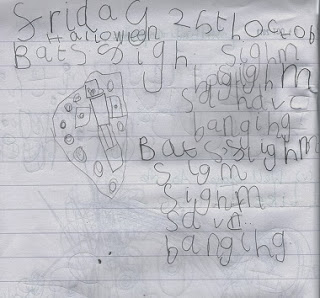 Friday 25th Octob
Halloween
Bats sigh sighm
sighm
sdund have
banging
Bats sighm
sigm
sighm
save
banging